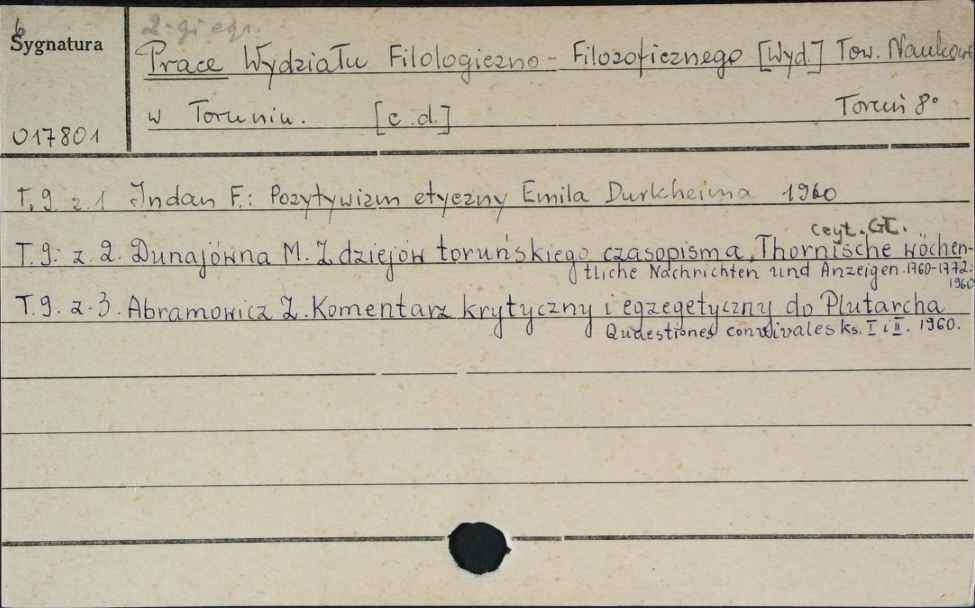 6
2-gi egz.
Sygnatura
Prace Wydziału Filologiczno-Filozoficznego [Wyd.] Tow. Naukow.
w Toruniu. [c.d.] Toruń 8°
017801
T. 9 z. 1 Indan F.: Pozytywizm etyczny Emila Durkheima 1960
czyt. Gł.
T. 9. z. 2. Dunajówna M. Z dziejów toruńskiego czasopisma „Thornische wöchen-
tliche Nachrichten und Anzeigen. 1760-1772.
1960
T. 9. z. 3. Abramowicz Z. Komentarz krytyczny i egzegetyczny do Plutarcha
Quaestiones convivales ks. I i II. 1960.